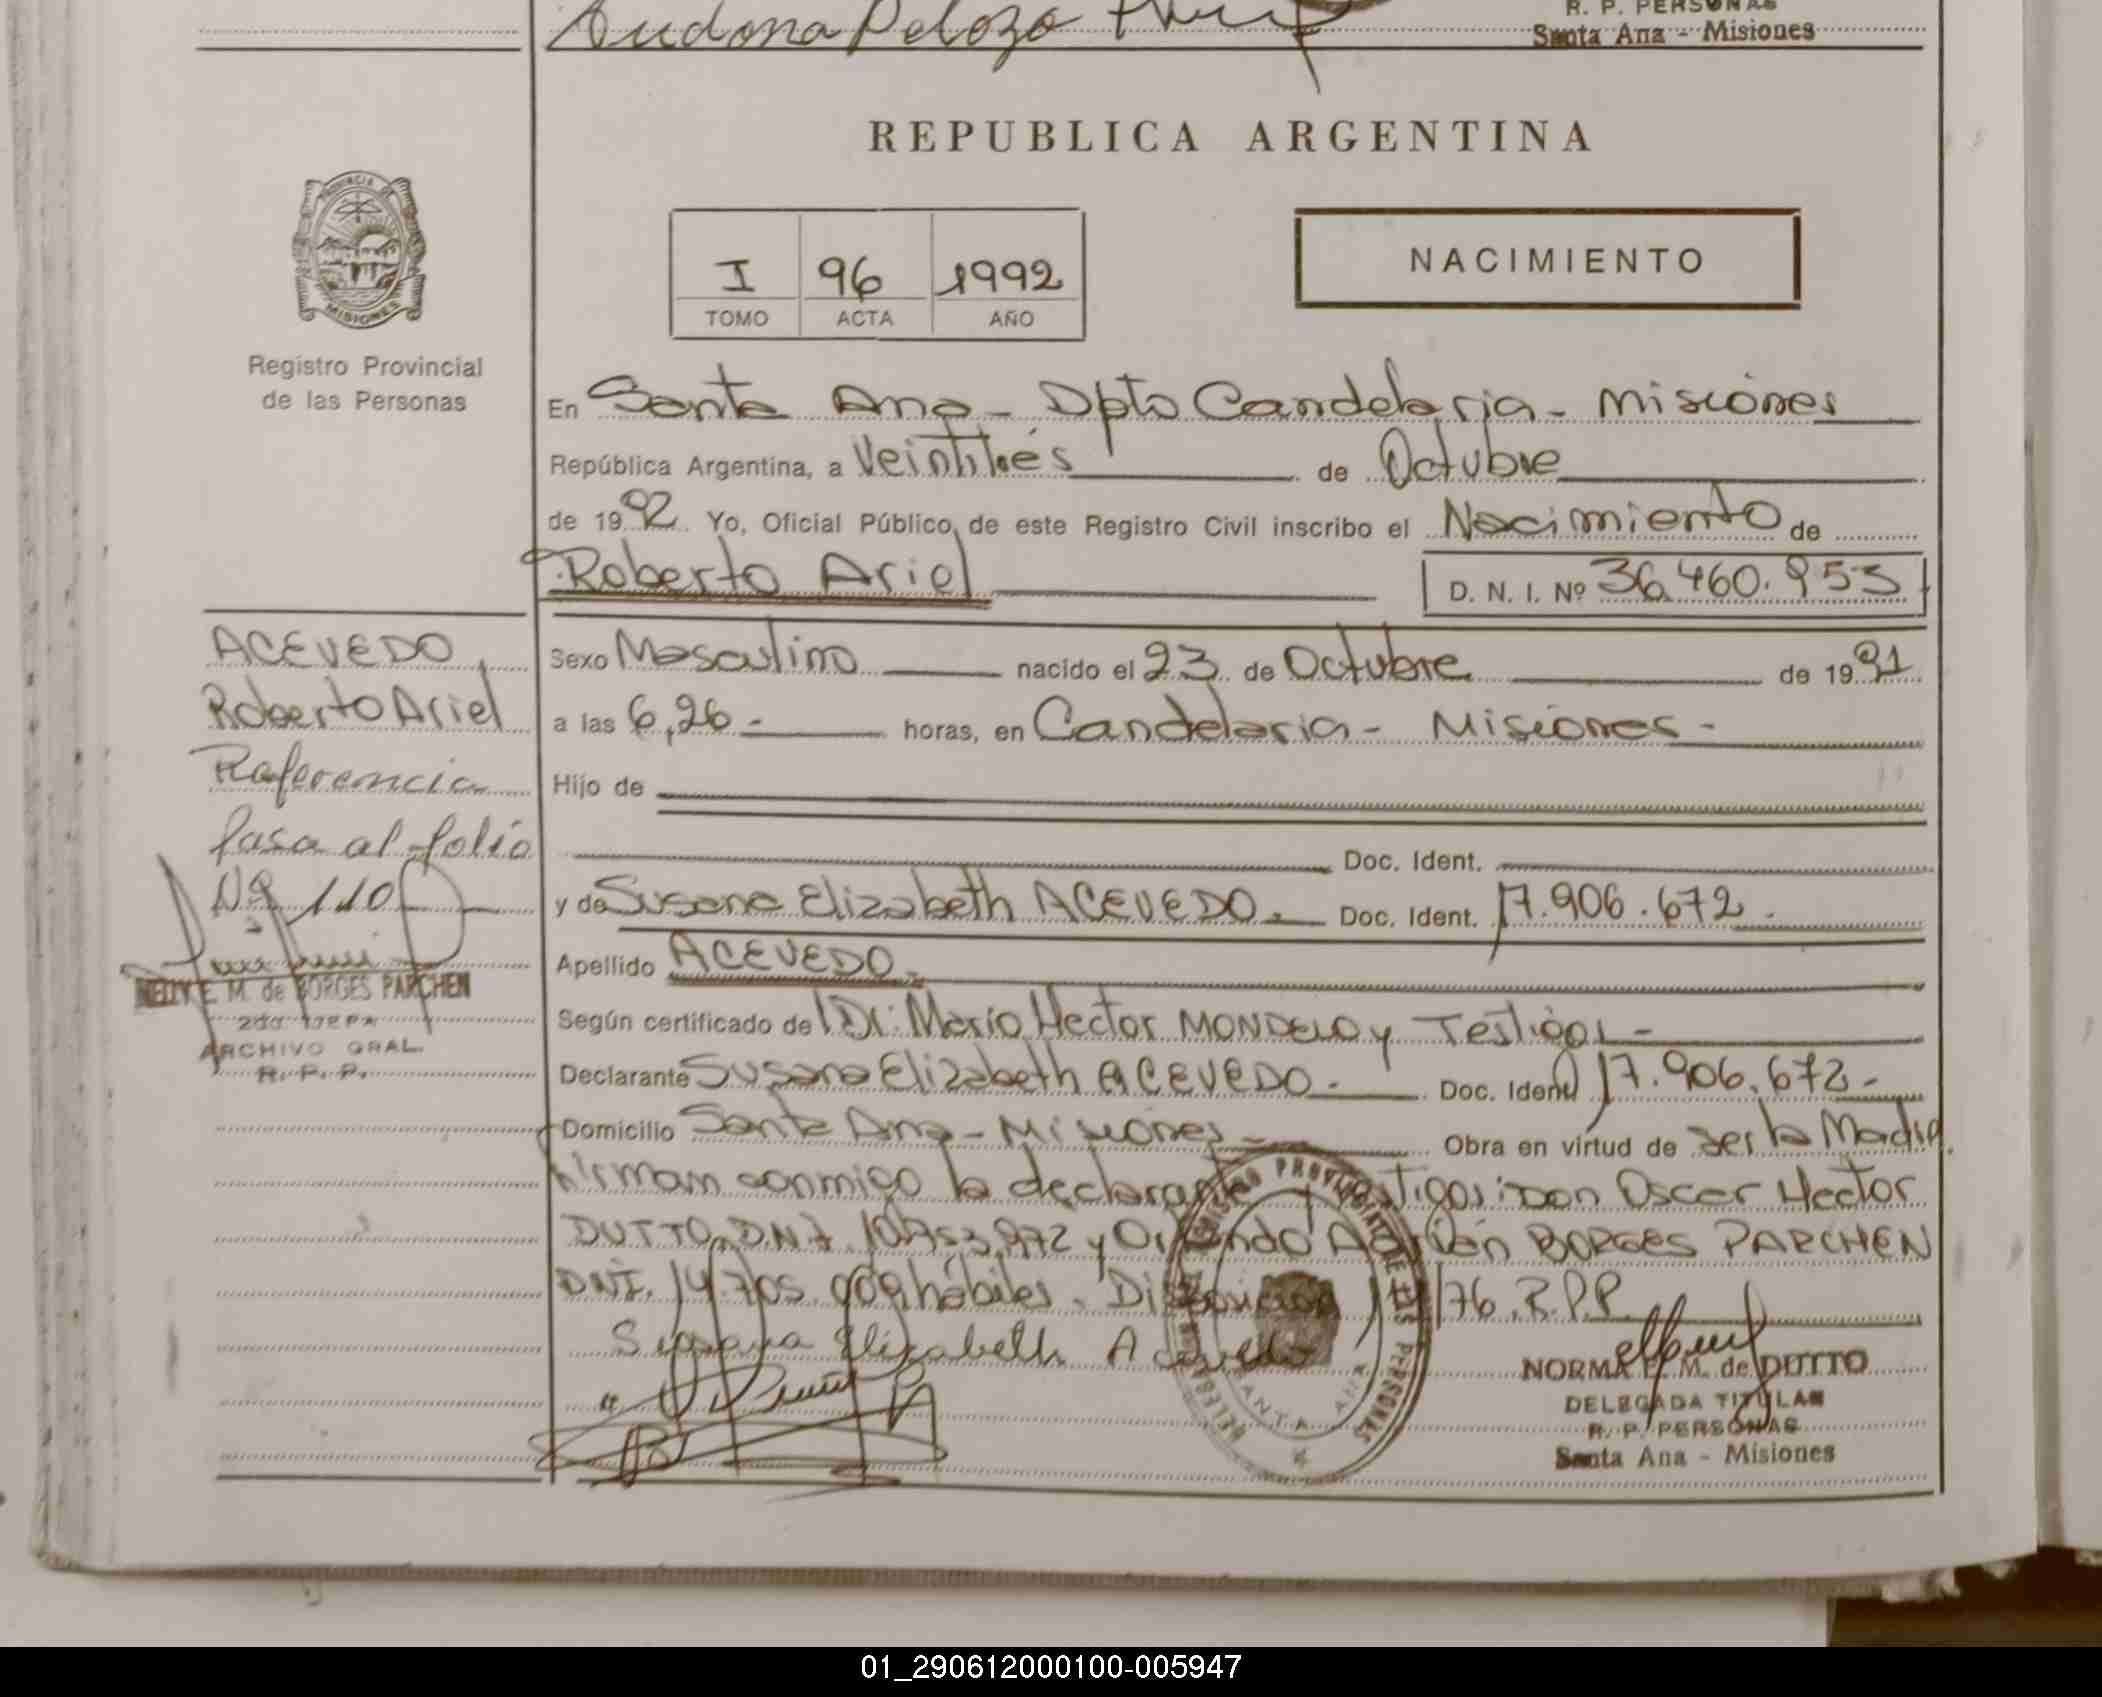 Audona Peloza
R. P. PERSONAS
Santa Ana - Misiones
REPUBLICA ARGENTINA
PROVINCIA DE
MISIONES
I 96 1992
TOMO ACTA AÑO
NACIMIENTO
Registro Provincial
de las Personas
En Santa Ana - Dpto Candelaria - Misiones
República Argentina, a Veintitrés de Octubre
de 1992 Yo, Oficial Público de este Registro Civil inscribo el Nacimiento de
Roberto Ariel
D. N. I. Nº 36.460.953
ACEVEDO
Roberto Ariel
Referencia
Pasa al folio
Nº 110
NELLY E. M. de BORGES PARCHEN
2do JEFA
ARCHIVO GRAL.
R. P. P.
Sexo Masculino nacido el 23 de Octubre de 1991
a las 6,26 - horas, en Candelaria - Misiones -
Hijo de
Doc. Ident.
y de Susana Elizabeth ACEVEDO. Doc. Ident. 17.906.672.
Apellido ACEVEDO.
Según certificado del Dr. Mario Hector MONDELO y Testigos -
Declarante Susana Elizabeth ACEVEDO. - Doc. Ident 17.906.672 -
Domicilio Santa Ana - Misiones - Obra en virtud de ser la Madre.
Firman conmigo la declarante Testigos: Don Oscar Hector
DUTTO, DNI. 10.953.972 y Orlando Adrián BORGES PARCHEN
DNI. 14.705. hábiles. Disposición 176. R.P.P.
Susana Elizabeth Acevedo
NORMA E. M. de DUTTO
DELEGADA TITULAR
R. P. PERSONAS
Santa Ana - Misiones
REGISTRO PROVINCIAL DE LAS PERSONAS
SANTA ANA
01_290612000100-005947